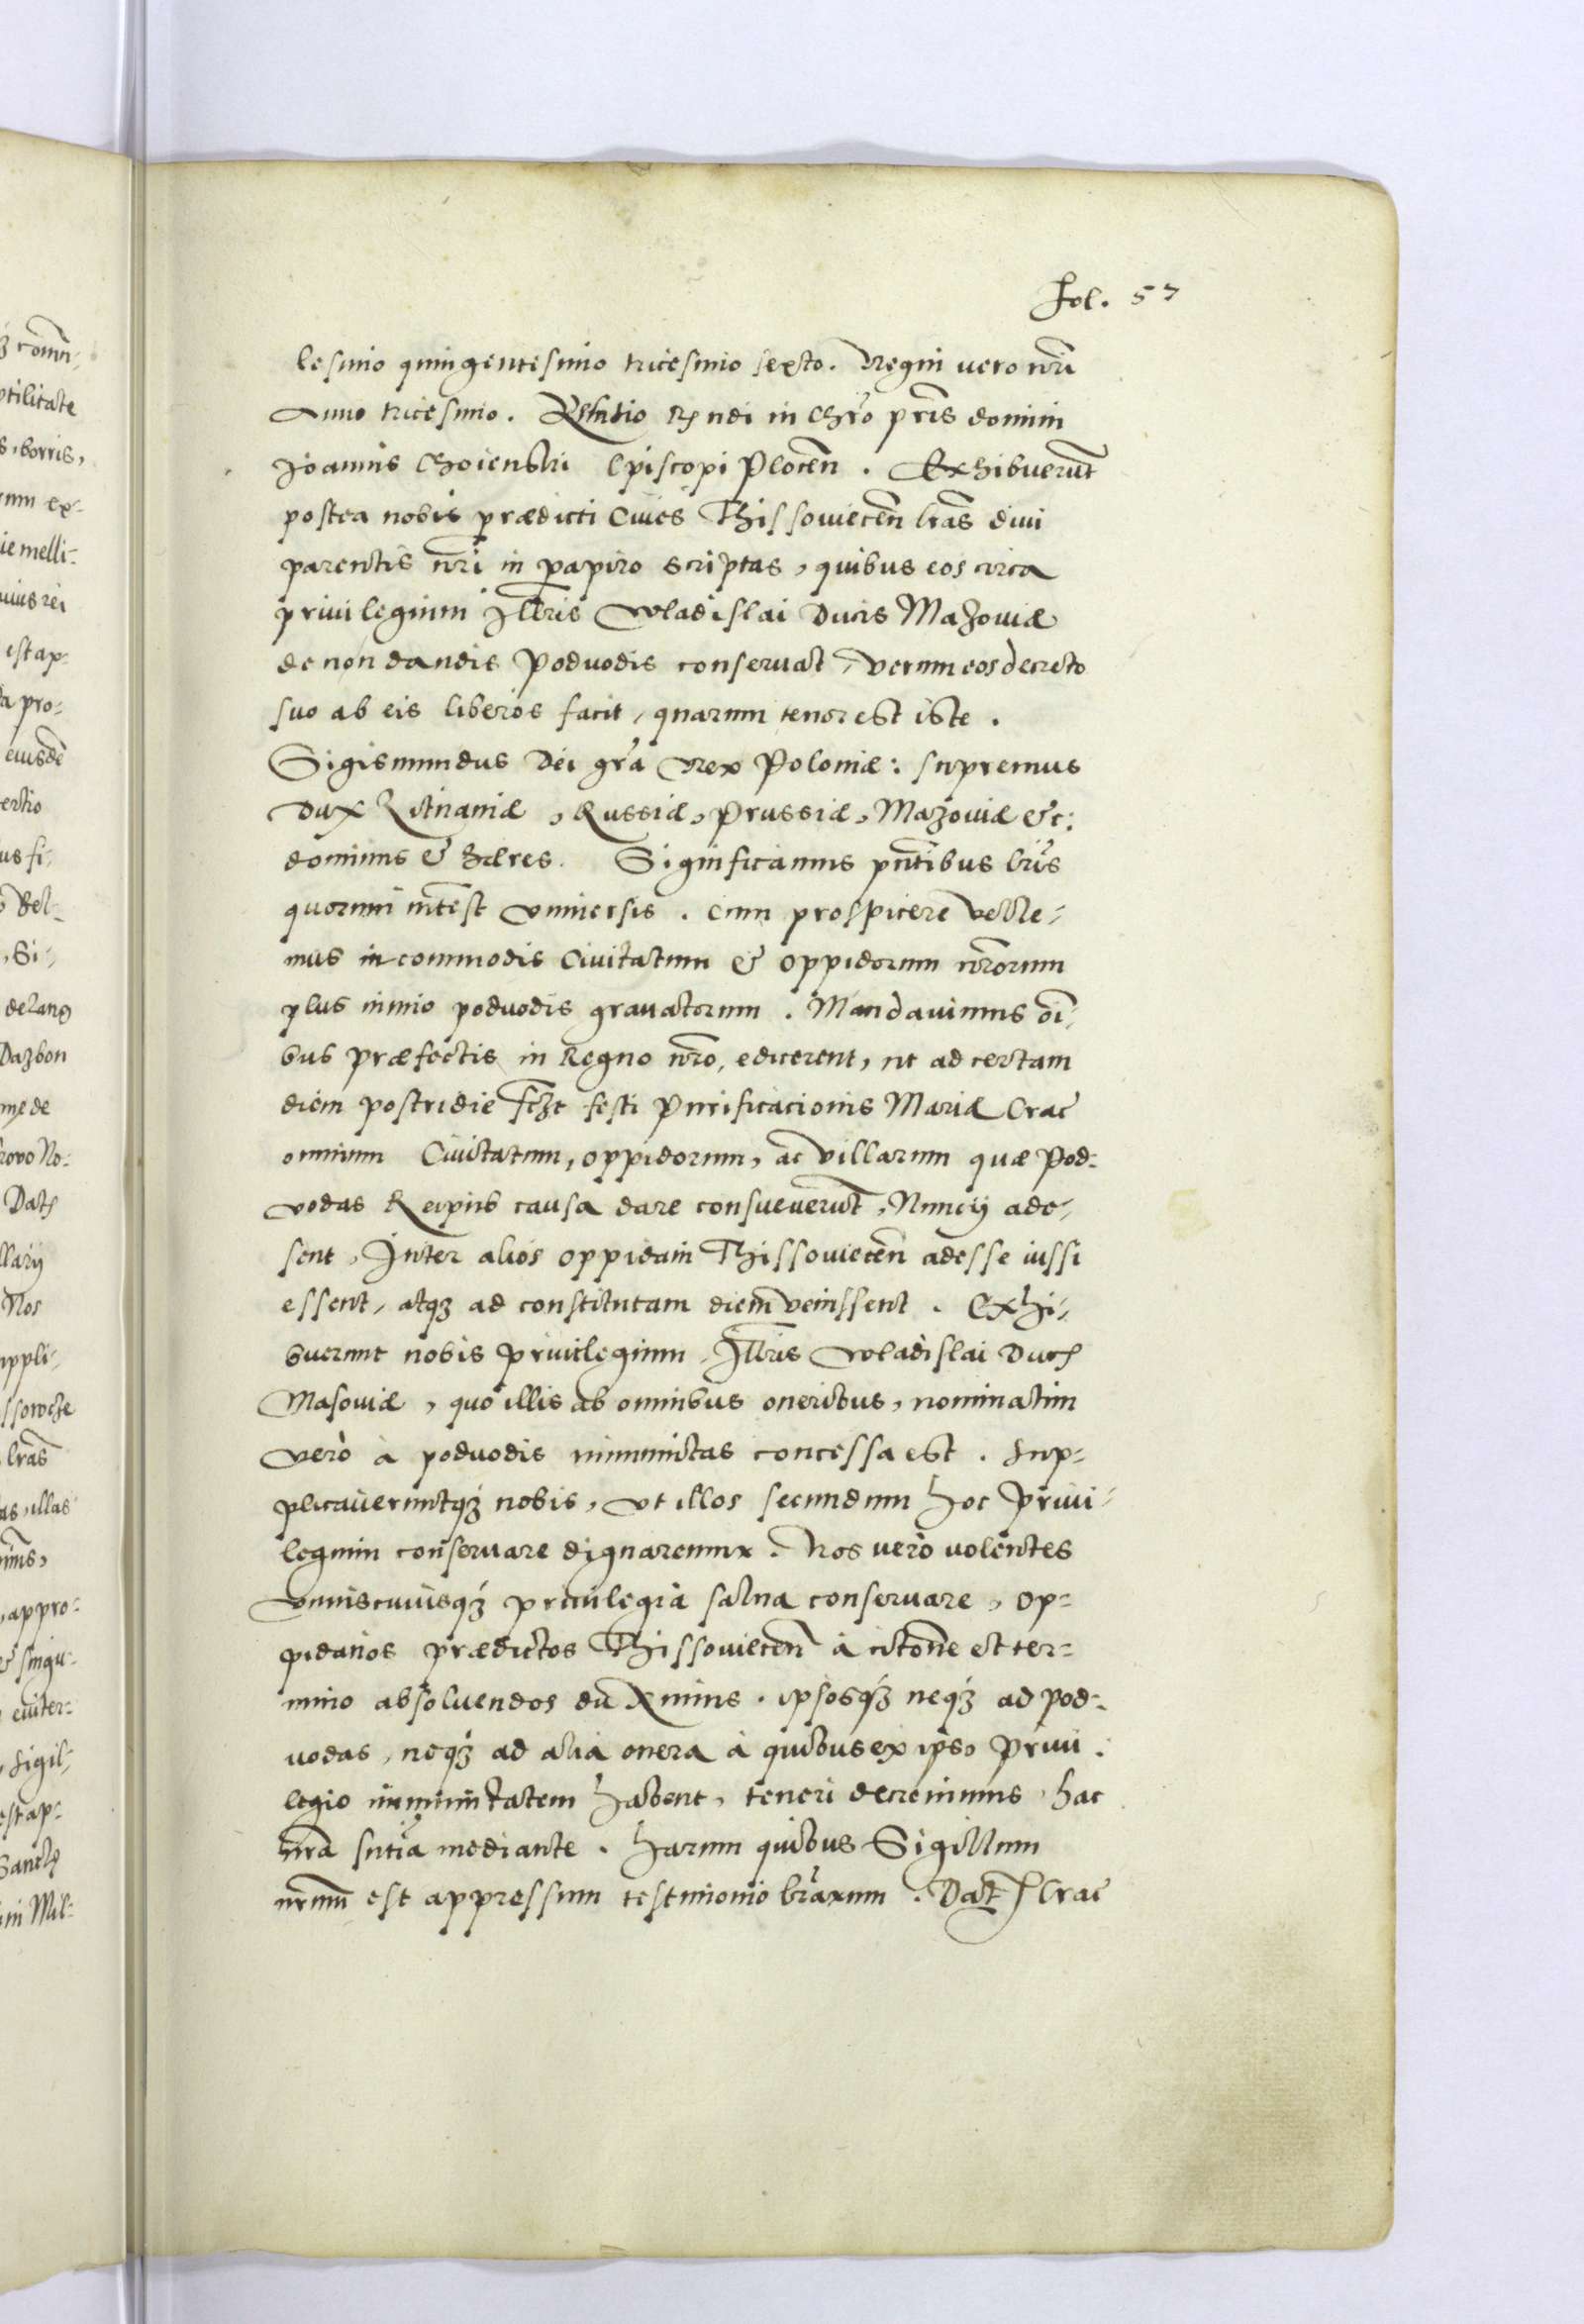 Fol. 57
lesimo quingentesimo tricesimo sexto. Regni vero nr̃i
Anno tricesimo. Relatio Rñdi in Chrõ pr̃is domini
Joannis Choienski Episcopi Plocen̄. Exhibuerūt
postea nobis prædicti Ciues Thissouiecen̄ lr̃as diui
parentis nr̃i in papiro scriptas, quibus eos circa
priuilegium Jll̃ris Wladislai Ducis Mazouiæ
de non dandis Podvodis conseruat, verum eos decreto
suo ab eis liberos facit, quarum tenor est iste.
Sigismundus Dei gr̃a Rex Poloniæ: supremus
Dux Litinaniæ, Russiæ, Prussiæ, Mazouiæ &c:
dominus & hæres. Significamus pn̄tibus lr̃is
quorum intēst vniuersis. Cum prospicere velle-
mus incommodis Ciuitatum & Oppidorum nr̃orum
plus inmio podvodis grauatorum. Mandauimus oī-
bus præfectis in Regno nr̃o, edicerent, ut ad certam
diem postridie festi Purificacionis Mariæ Crac̄
omnium Ciuitatum, oppidorum, ac villarum quæ Pod-
vodas Reipub causa dare consueuerūt, Nuncij ade-
sent, Inter alios oppidani Thissouiecen̄ adesse iussi
essent, atq3 ad constitutam diem venissent. Exhi-
buerunt nobis Priuilegium Jll̃ris Wladislai Ducis
Masouiæ, quo illis ab omnibus oneribus, nominatim
verò à podvodis immunitas concessa est. Sup-
plicaueruntq3 nobis, vt illos secundum hoc Priui-
legium conseruare dignaremur. Nos verò volentes
vniuscuiusq3 priuilegia salua conseruare, Op-
pidanos prædictos Thissouiecen̄ à citatōne et ter-
mino absoluendos duximus. ipsosq3 neq3 ad Pod-
uodas, neq3 ad alia onera à quibus ex ipso Priui-
legio immunitatem habent, teneri decreuimus hac
nr̃a sn̄tia mediante. Harum quibus Sigillum
nr̃um est appressum testimonio lr̃arum. Dat Crac̄